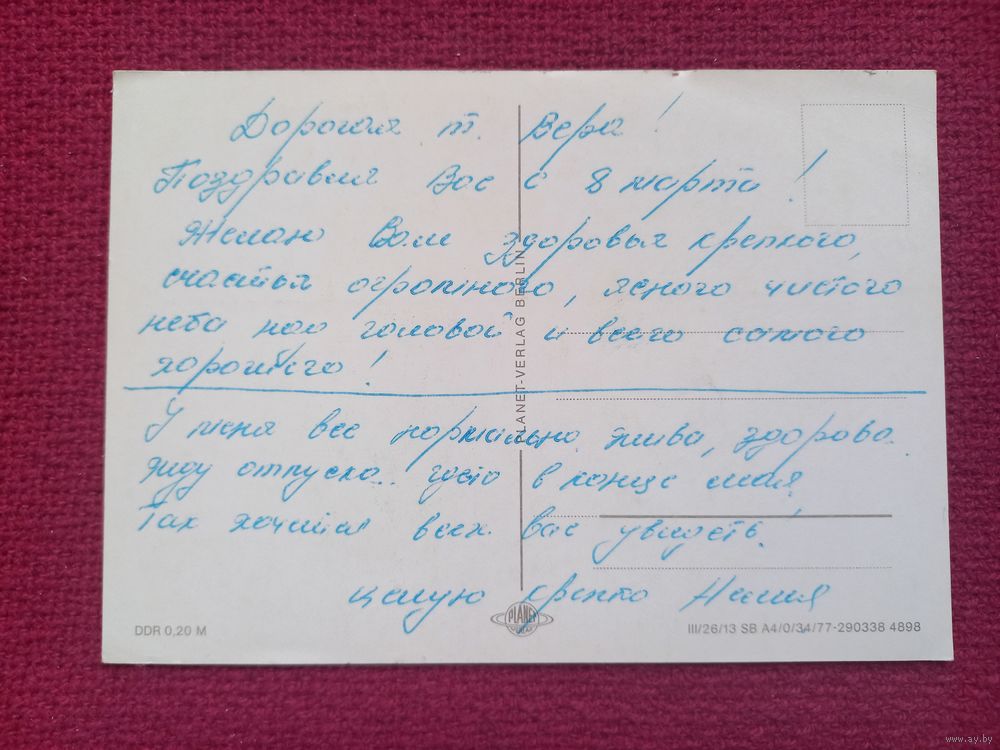 Дорогая т. Вера!
Поздравляя Вас с 8 марта!
Желаю Вам здоровья крепкого,
счастья огромного, ясного чистого
неба над головой и всего самого
хорошего!
У меня все нормально, жива, здорова.
Жду отпуска. в конце мая
Так хочется всех вас увидеть!
целую крепко
PLANET-VERLAG BERLIN
PLANET
DDR 0,20 M
III/26/13 SB A4/0/34/77-290338 4898
www.ay.by